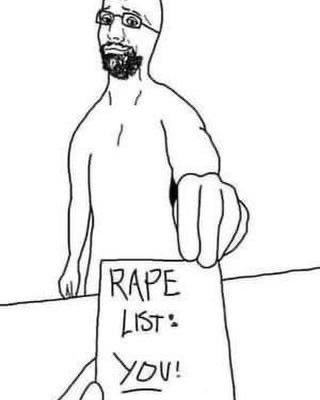 RAPE
LIST:
YOU!